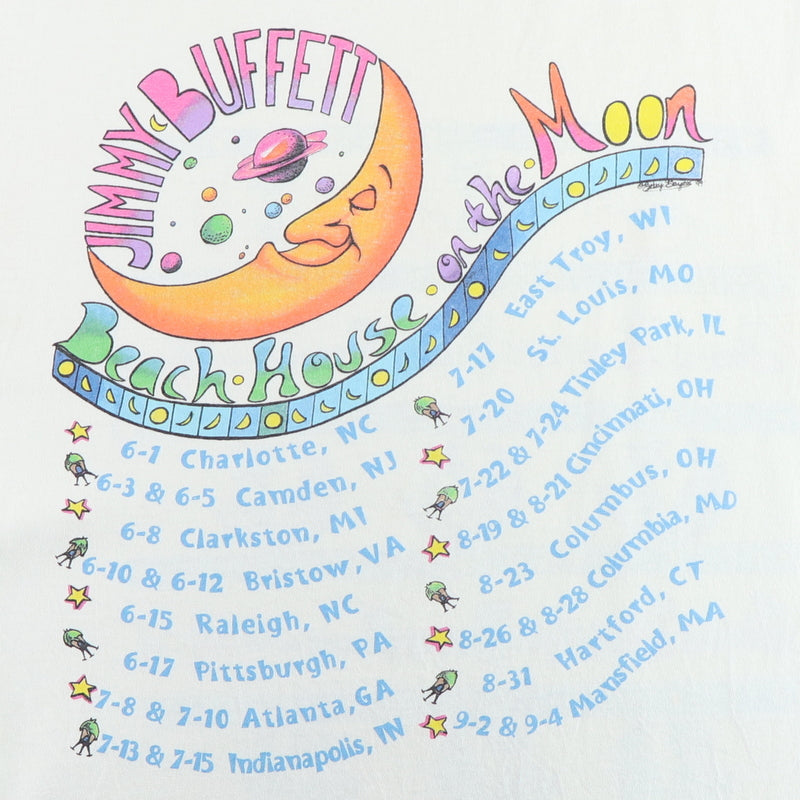 JIMMY BUFFETT
Beach House on the Moon
6-1 Charlotte, NC
6-3 & 6-5 Camden, NJ
6-8 Clarkston, MI
6-10 & 6-12 Bristow, VA
6-15 Raleigh, NC
6-17 Pittsburgh, PA
7-8 & 7-10 Atlanta, GA
7-13 & 7-15 Indianapolis, IN
7-17 East Troy, WI
7-20 St. Louis, MO
7-22 & 7-24 Tinley Park, IL
8-19 & 8-21 Cincinnati, OH
8-23 Columbus, OH
8-26 & 8-28 Columbia, MD
8-31 Hartford, CT
9-2 & 9-4 Mansfield, MA